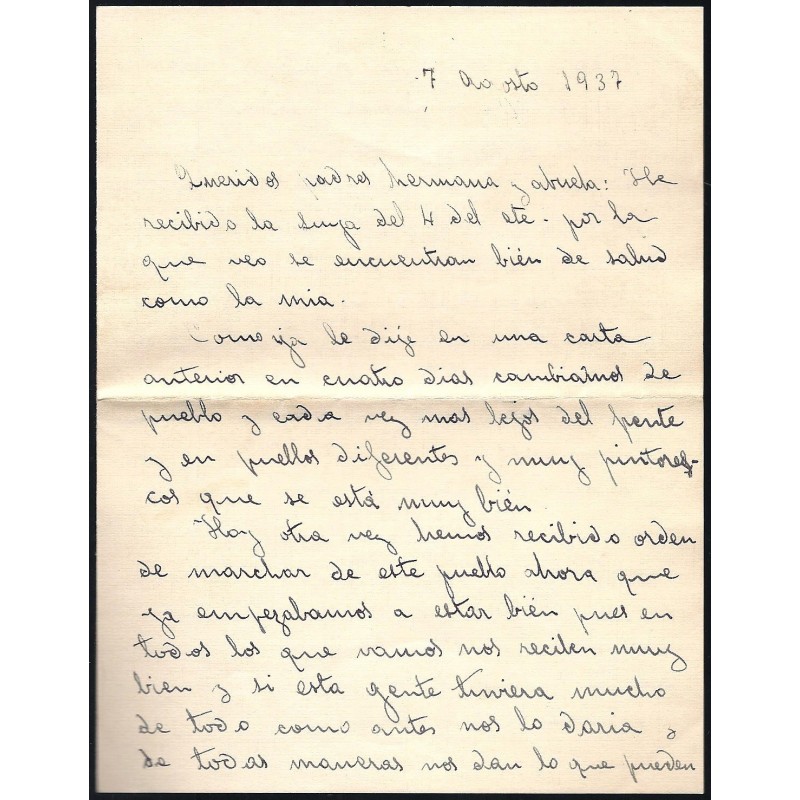 7 Agosto 1937
Queridos padres hermana y abuela: He
recibido la suya del 4 del cte. por la
que veo se encuentran bién de salud
como la mia.
Como ya le dije en una carta
anterior en cuatro dias cambiamos de
pueblo y cada vez mas lejos del frente
y en pueblos diferentes y muy pintores-
cos que se está muy bién.
Hoy otra vez hemos recibido orden
de marchar de este pueblo ahora que
ya empezabamos a estar bién pues en
todos los que vamos nos reciben muy
bien y si esta gente tuviera mucho
de todo como antes nos lo daria y
de todas maneras nos dan lo que pueden